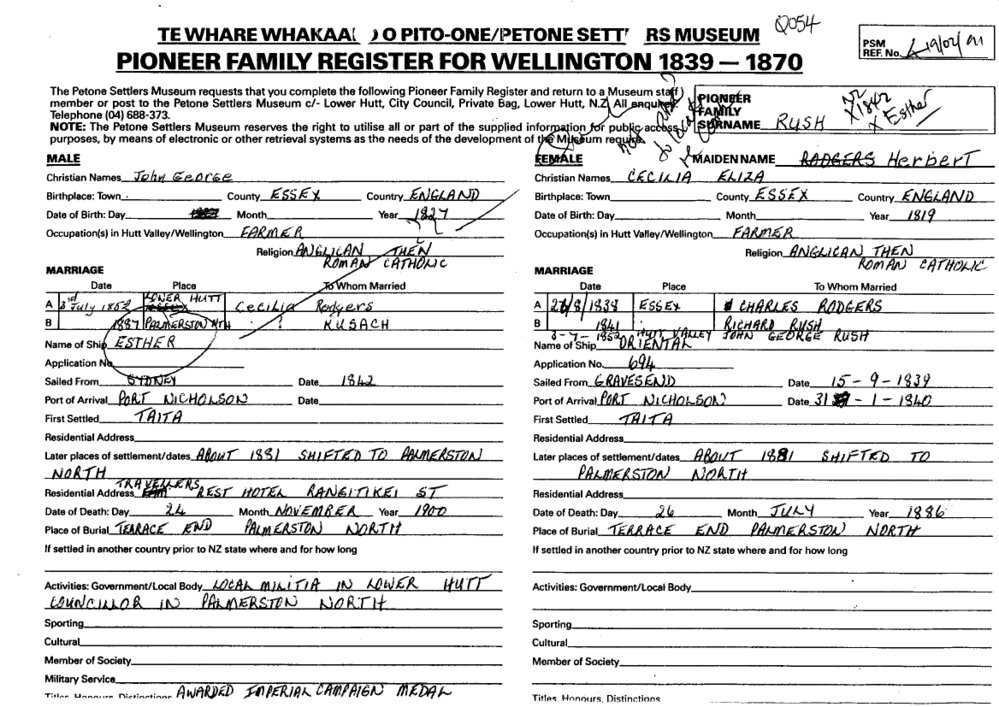 Q054
TE WHARE WHAKAA( ) O PITO-ONE/PETONE SETT' RS MUSEUM
PIONEER FAMILY REGISTER FOR WELLINGTON 1839 — 1870
PSM
REF. No. L19/02/91
The Petone Settlers Museum requests that you complete the following Pioneer Family Register and return to a Museum staff
member or post to the Petone Settlers Museum c/- Lower Hutt, City Council, Private Bag, Lower Hutt, N.Z. All enquiries
Telephone (04) 688-373.
NOTE: The Petone Settlers Museum reserves the right to utilise all or part of the supplied information for public access
purposes, by means of electronic or other retrieval systems as the needs of the development of the Museum require.
PIONEER
FAMILY
SURNAME RUSH
1842
X Esther
MALE
Christian Names John George
Birthplace: Town County ESSEX Country ENGLAND
Date of Birth: Day Month Year 1827
Occupation(s) in Hutt Valley/Wellington FARMER
Religion ANGLICAN THEN
ROMAN CATHOLIC
MARRIAGE
Date Place To Whom Married
A 3rd July 1852 LOWER HUTT Cecilia Rodgers
B 1887 PALMERSTON NTH ? KUSACH
Name of Ship ESTHER
Application No.
Sailed From SYDNEY Date 1842
Port of Arrival PORT NICHOLSON Date
First Settled TAITA
Residential Address
Later places of settlement/dates ABOUT 1881 SHIFTED TO PALMERSTON
NORTH
Residential Address TRAVELLERS REST HOTEL RANGITIKEI ST
Date of Death: Day 24 Month NOVEMBER Year 1900
Place of Burial TERRACE END PALMERSTON NORTH
If settled in another country prior to NZ state where and for how long
Activities: Government/Local Body LOCAL MILITIA IN LOWER HUTT
COUNCILLOR IN PALMERSTON NORTH
Sporting
Cultural
Member of Society
Military Service
Titles, Honours, Distinctions AWARDED IMPERIAL CAMPAIGN MEDAL
FEMALE
MAIDEN NAME RODGERS Herbert
Christian Names CECILIA ELIZA
Birthplace: Town County ESSEX Country ENGLAND
Date of Birth: Day Month Year 1819
Occupation(s) in Hutt Valley/Wellington FARMER
Religion ANGLICAN THEN
ROMAN CATHOLIC
MARRIAGE
Date Place To Whom Married
A 27/8/1838 ESSEX CHARLES RODGERS
B 1841 RICHARD RUSH
3-7-1852 HUTT VALLEY JOHN GEORGE RUSH
Name of Ship ORIENTAL
Application No. 694
Sailed From GRAVESEND Date 15-9-1839
Port of Arrival PORT NICHOLSON Date 31-1-1840
First Settled TAITA
Residential Address
Later places of settlement/dates ABOUT 1881 SHIFTED TO
PALMERSTON NORTH
Residential Address
Date of Death: Day 26 Month JULY Year 1886
Place of Burial TERRACE END PALMERSTON NORTH
If settled in another country prior to NZ state where and for how long
Activities: Government/Local Body
Sporting
Cultural
Member of Society
Military Service
Titles, Honours, Distinctions